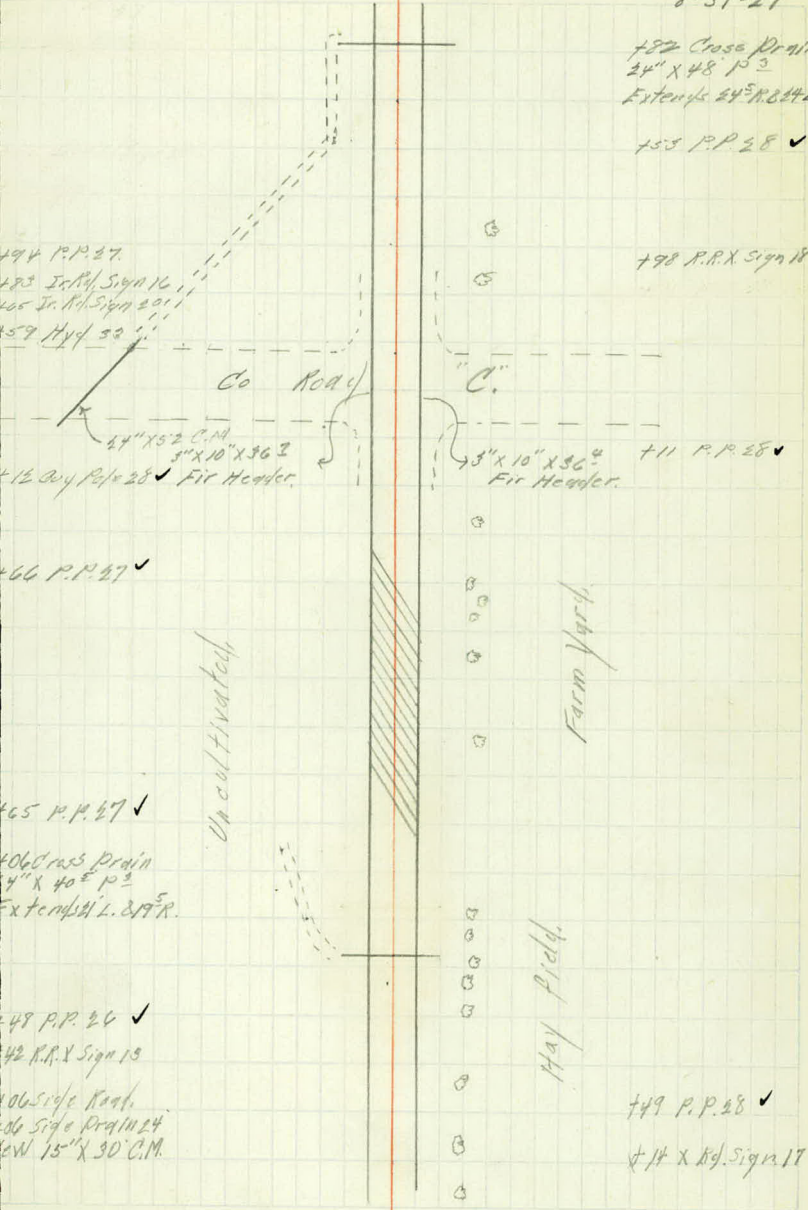 8-31-27
+82 Cross Drain
24" X 48' P 3
Extends 24⁵ R. & 24
+53 P.P. 28 ✓
+98 R.R.X. Sign 18
+94 P.P. 27.
+83 Ir. Rd. Sign 16
+05 Ir. Rd. Sign 20
+59 Hyd 33
Co Road "C."
24" X 52 C.M.
3" X 10" X 36
Fir Header.
3" X 10" X 36⁴
Fir Header.
+11 P.P. 28 ✓
+12 Guy Pole 28 ✓
+66 P.P. 27 ✓
Uncultivated.
Farm Yard.
+65 P.P. 27 ✓
+06 Cross Drain
4" X 40⁵ P 3
Extends 21' L. & 19⁵ R.
Hay Field.
48 P.P. 26 ✓
42 R.R.X Sign 13
06 Side Road.
06 Side Drain 24
15" X 30' C.M.
+49 P.P. 28 ✓
+14 X Rd. Sign 17